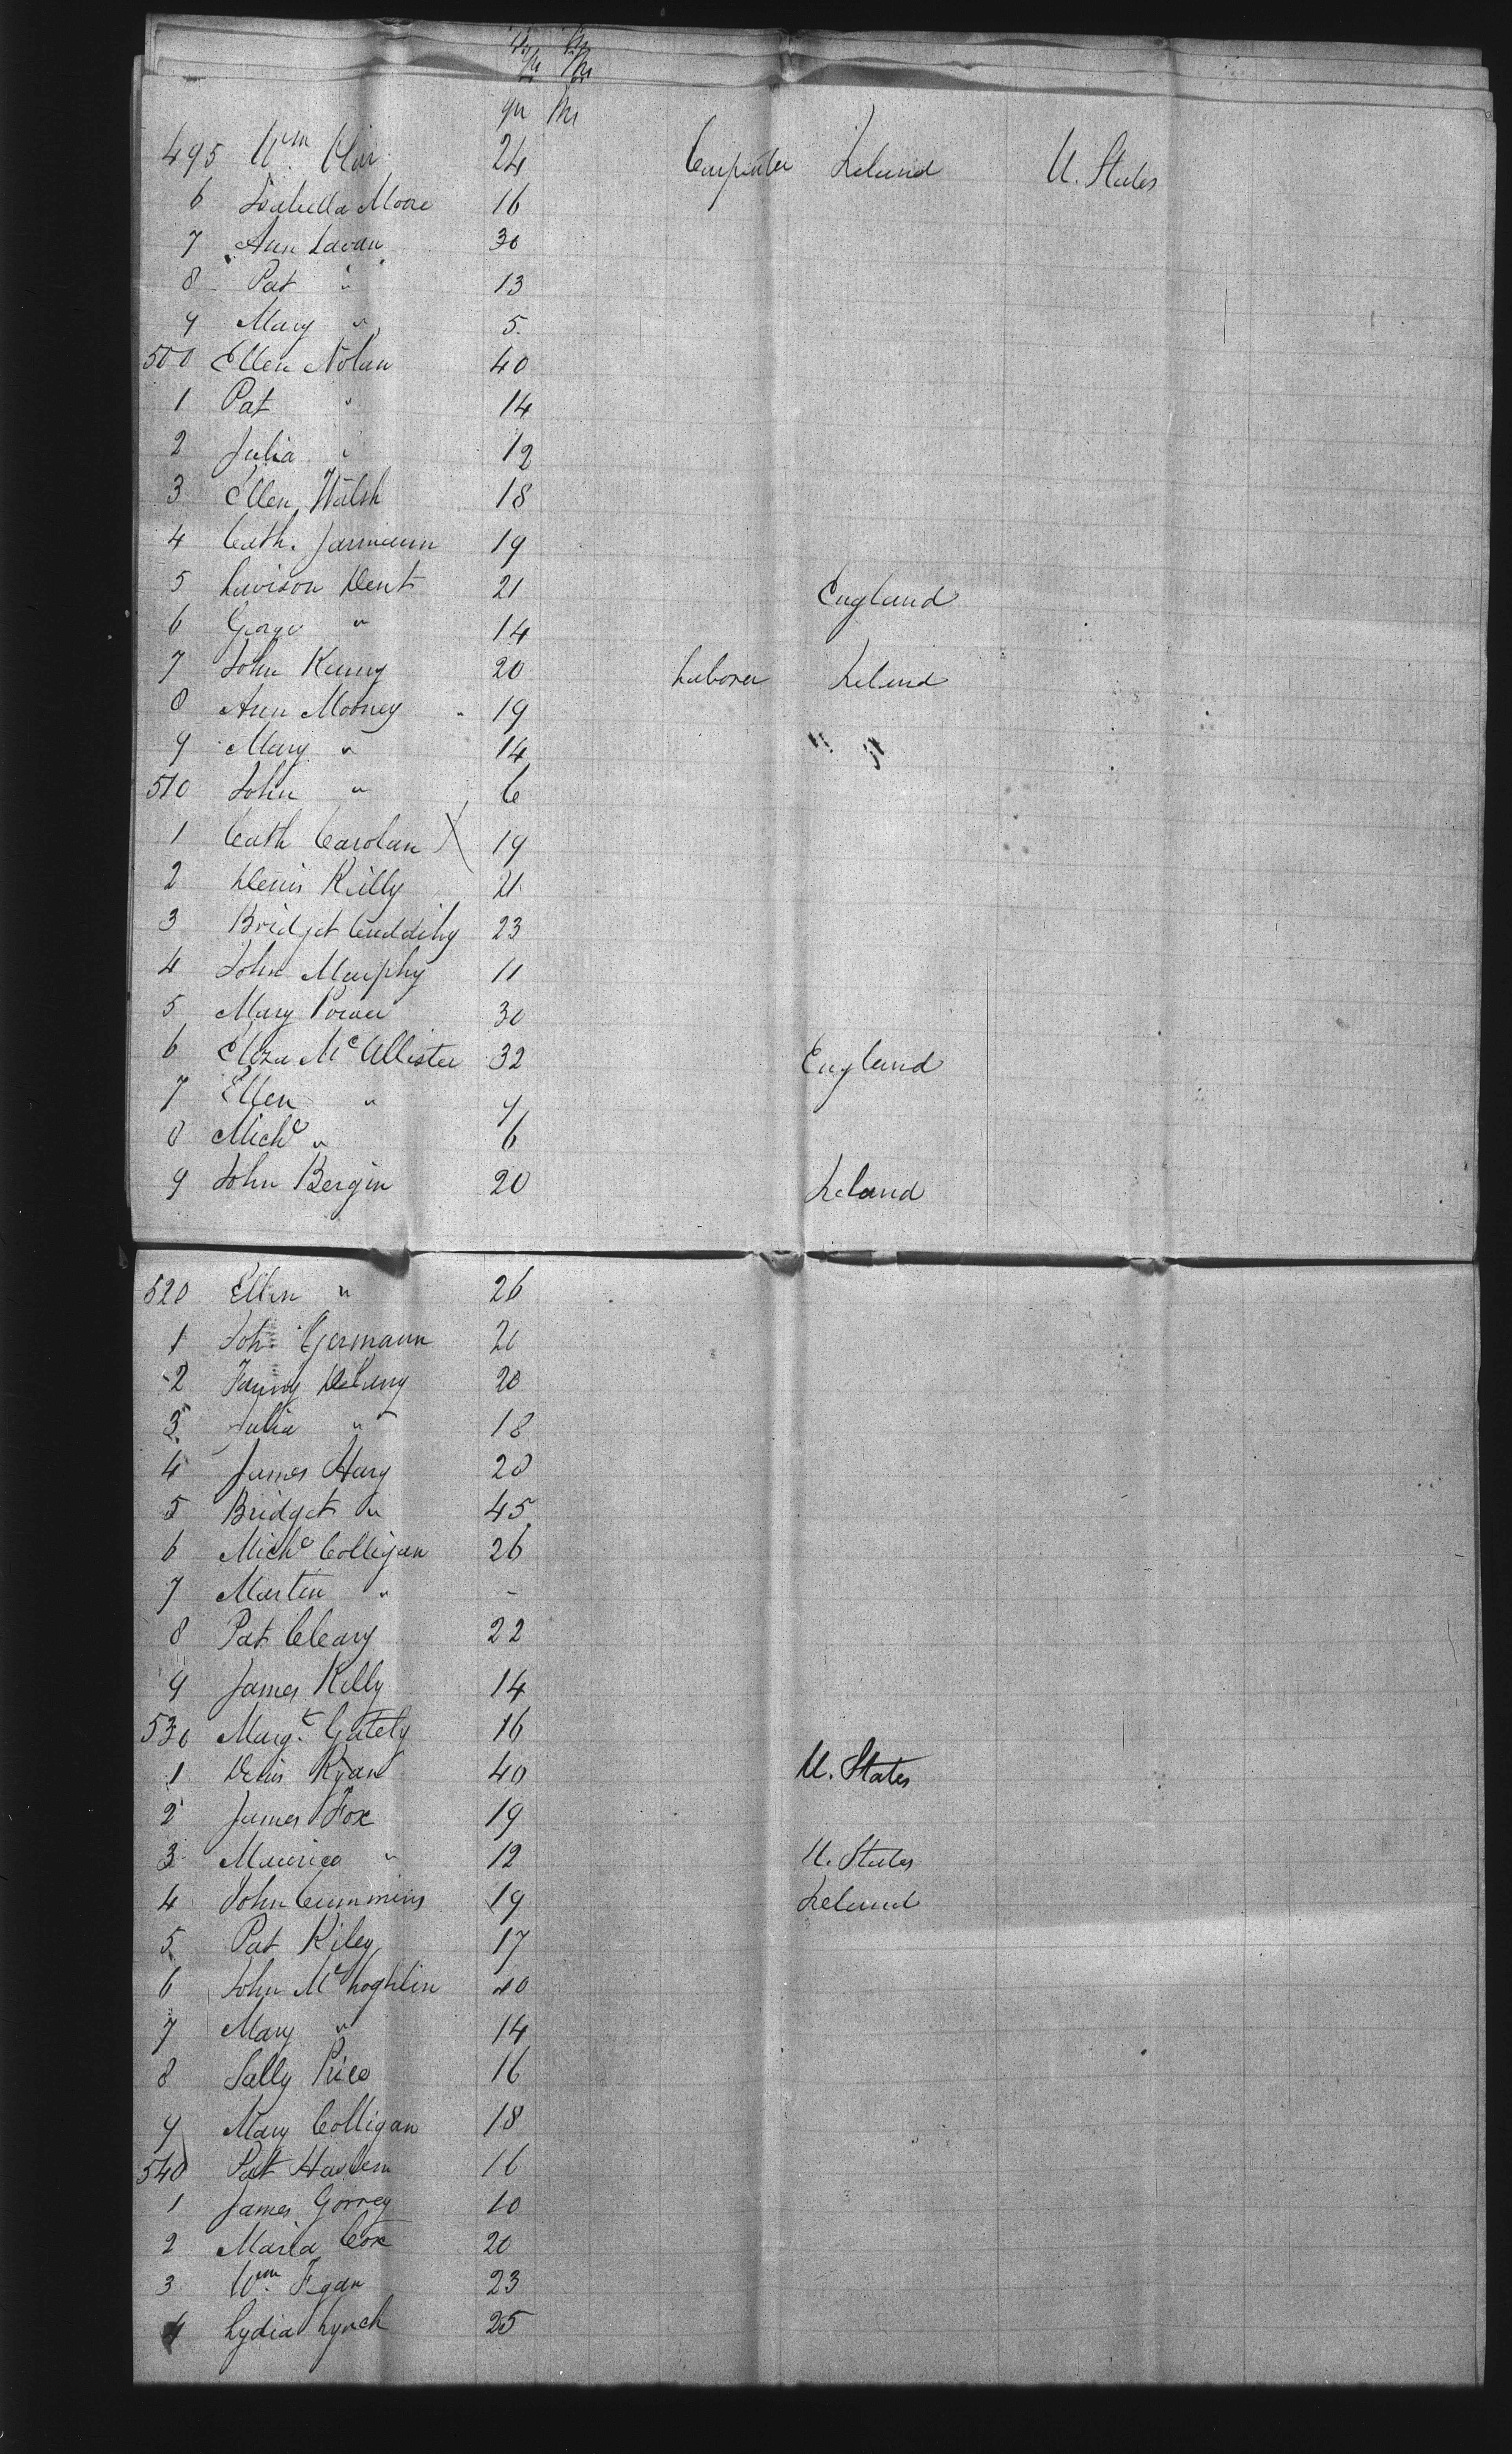 495 Wm 24 Carpenter Ireland U. States
6 Isabella Moore 16
7 Ann Lavan 30
8 Pat " 13
9 Mary " 5
500 Ellen Nolan 40
1 Pat " 14
2 Julia " 12
3 Ellen Walsh 18
4 Cath. Jarmann 19
5 Lavison Dent 21 England
6 George " 14
7 John Kenny 20 Laborer Ireland
8 Ann Mooney 19
9 Mary " 14 " "
510 John " 6
1 Cath Carolan X 19
2 Denis Killy 21
3 Bridget Cuddihy 23
4 John Murphy 11
5 Mary Power 30
6 Eliza McAllister 32 England
7 Ellen "
8 Michl " 6
9 John Bergin 20 Ireland
520 Ellen " 26
1 Germann
2 Fanny Delany 20
3 Julia " 18
4 James Hary 20
5 Bridget " 45
6 Michl Colligan 26
7 Martin " -
8 Pat Cleary 22
9 James Kelly 14
530 Margt Gately 16
1 Denis Ryan 40 U. States
2 James Fox 19
3 Maurice " 12 U. States
4 John Cummins 19 Ireland
5 Pat Riley 17
6 John McLoghlin 40
7 Mary " 14
8 Sally Price 16
9 Mary Colligan 18
540 Pat 16
1 James Gorrey 10
2 Maria Cox 20
3 Wm Egan 23
4 Lydia Lynch 25